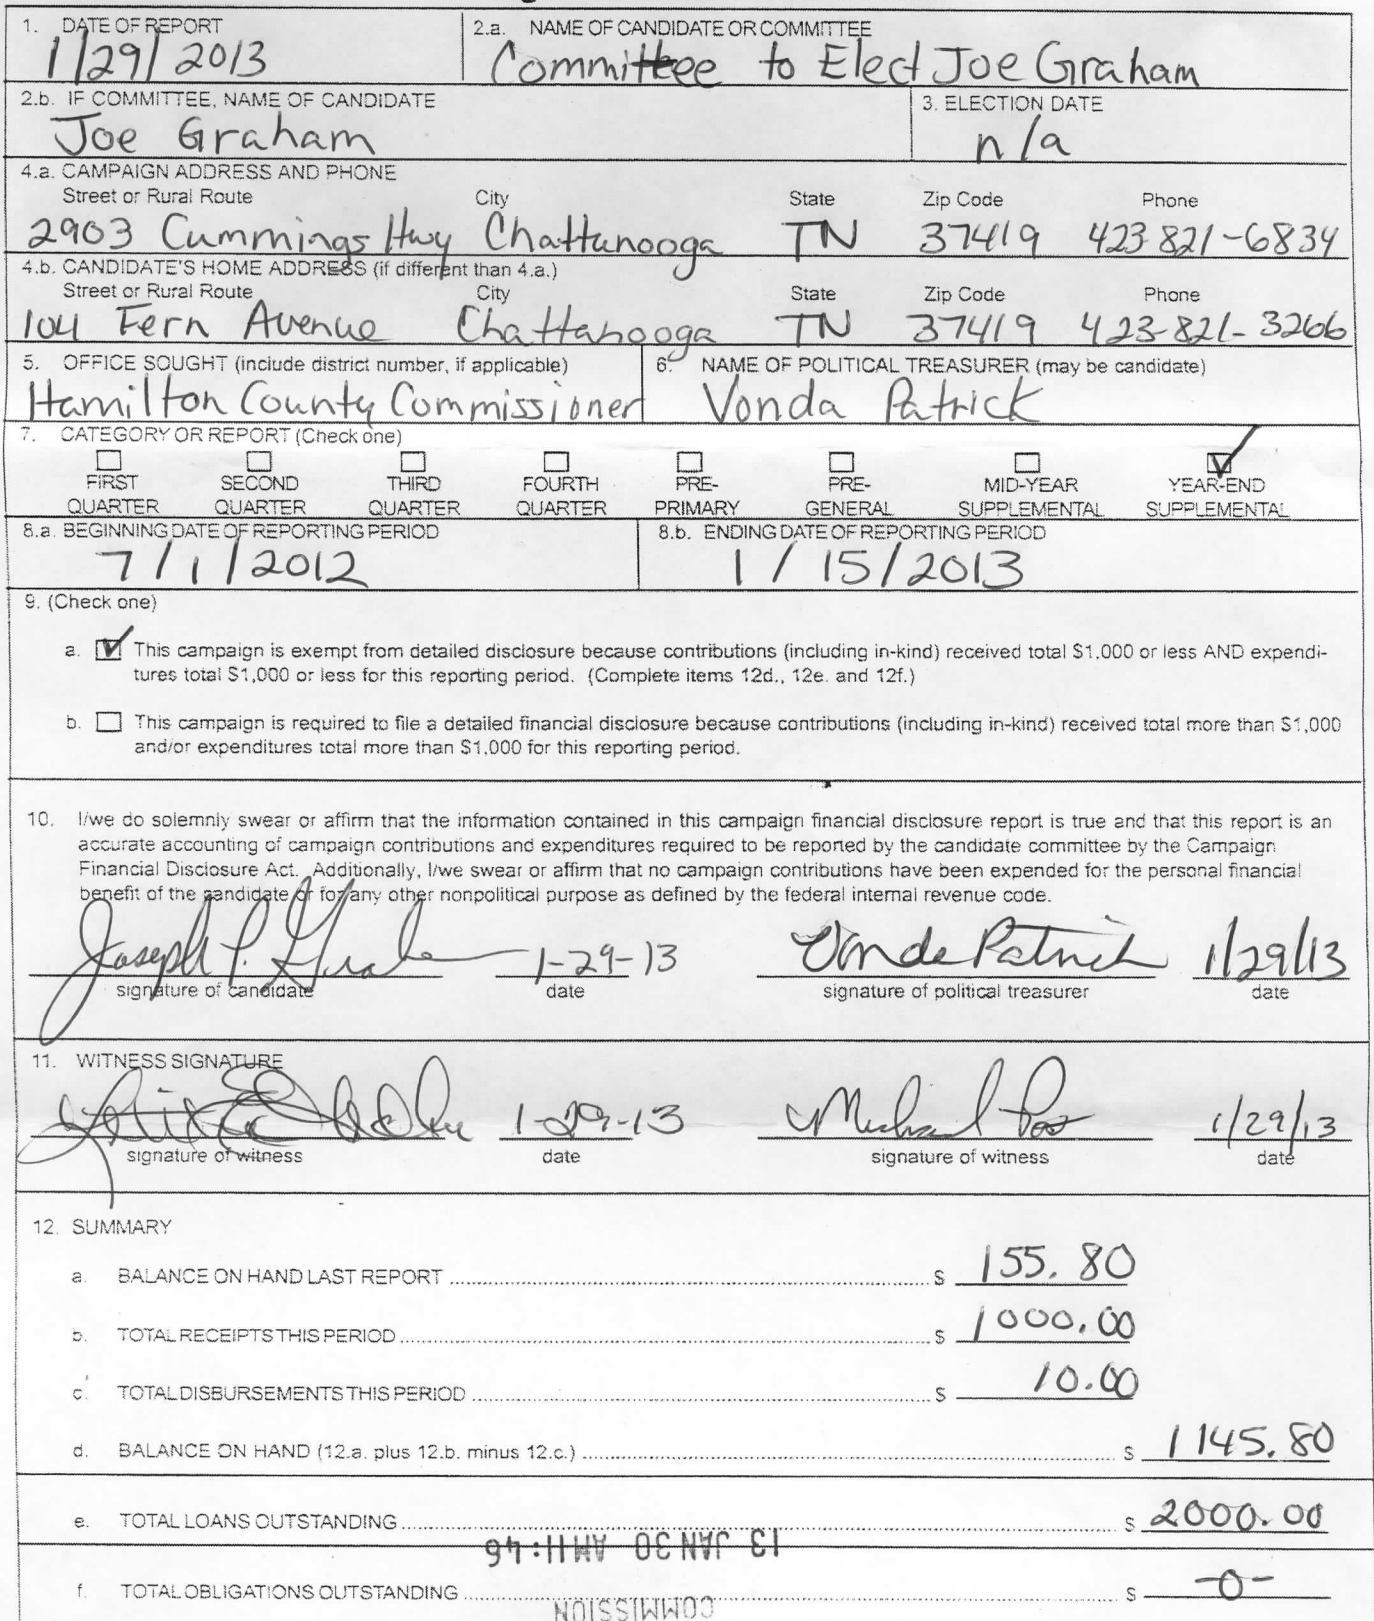 1. DATE OF REPORT
1/29/2013
2.a. NAME OF CANDIDATE OR COMMITTEE
Committee to Elect Joe Graham
2.b. IF COMMITTEE, NAME OF CANDIDATE
Joe Graham
3. ELECTION DATE
n/a
4.a. CAMPAIGN ADDRESS AND PHONE
Street or Rural Route City State Zip Code Phone
2903 Cummings Hwy Chattanooga TN 37419 423-821-6834
4.b. CANDIDATE'S HOME ADDRESS (if different than 4.a.)
Street or Rural Route City State Zip Code Phone
104 Fern Avenue Chattanooga TN 37419 423-821-3266
5. OFFICE SOUGHT (include district number, if applicable)
Hamilton County Commissioner
6. NAME OF POLITICAL TREASURER (may be candidate)
Vonda Patrick
7. CATEGORY OR REPORT (Check one)
FIRST QUARTER
SECOND QUARTER
THIRD QUARTER
FOURTH QUARTER
PRE-PRIMARY
PRE-GENERAL
MID-YEAR SUPPLEMENTAL
YEAR-END SUPPLEMENTAL
8.a. BEGINNING DATE OF REPORTING PERIOD
7/1/2012
8.b. ENDING DATE OF REPORTING PERIOD
1/15/2013
9. (Check one)
a. This campaign is exempt from detailed disclosure because contributions (including in-kind) received total $1,000 or less AND expendi-
tures total $1,000 or less for this reporting period. (Complete items 12d., 12e. and 12f.)
b. This campaign is required to file a detailed financial disclosure because contributions (including in-kind) received total more than $1,000
and/or expenditures total more than $1,000 for this reporting period.
10. I/we do solemnly swear or affirm that the information contained in this campaign financial disclosure report is true and that this report is an
accurate accounting of campaign contributions and expenditures required to be reported by the candidate committee by the Campaign
Financial Disclosure Act. Additionally, I/we swear or affirm that no campaign contributions have been expended for the personal financial
benefit of the candidate or for any other nonpolitical purpose as defined by the federal internal revenue code.
Joseph P. Graham 1-29-13 Vonda Patrick 1/29/13
signature of candidate date signature of political treasurer date
11. WITNESS SIGNATURE
1-29-13 Michael 1/29/13
signature of witness date signature of witness date
12. SUMMARY
a. BALANCE ON HAND LAST REPORT $ 155.80
b. TOTAL RECEIPTS THIS PERIOD $ 1000.00
c. TOTAL DISBURSEMENTS THIS PERIOD $ 10.00
d. BALANCE ON HAND (12.a. plus 12.b. minus 12.c.) $ 1145.80
e. TOTAL LOANS OUTSTANDING $ 2000.00
13 JAN 30 AM 11:46
f. TOTAL OBLIGATIONS OUTSTANDING $ -0-
COMMISSION